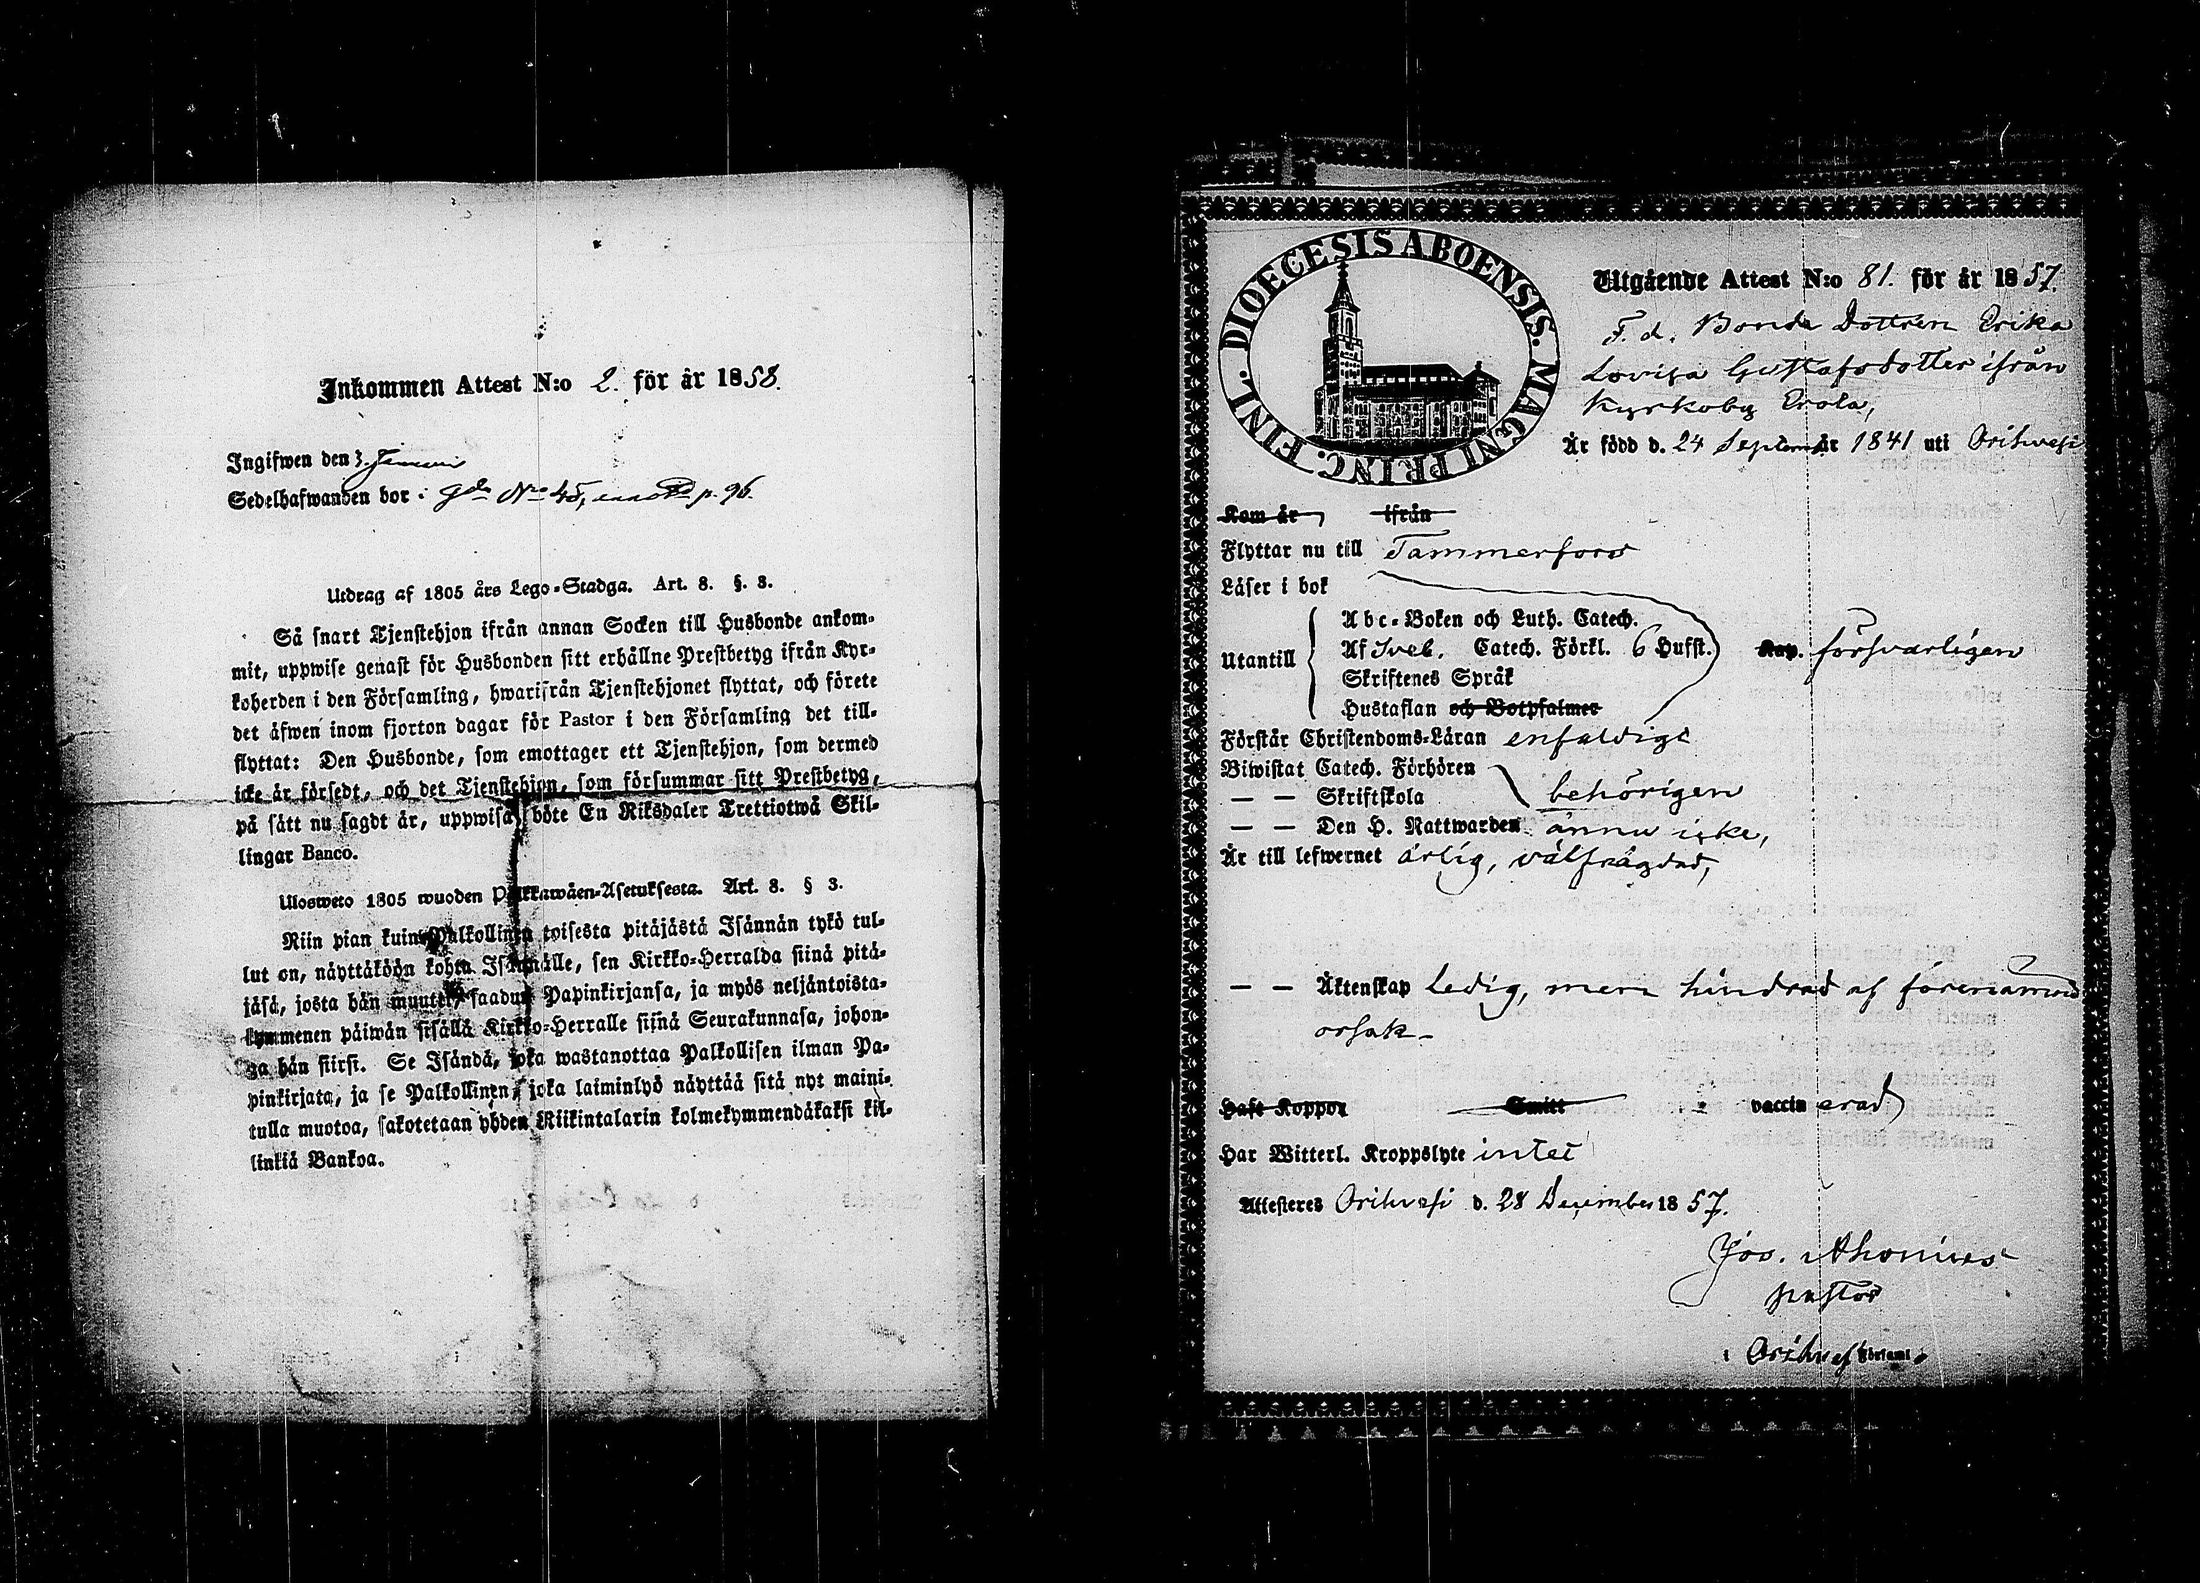 Inkommen Attest N:o 2. för år 1858.
Ingifwen den 3. Januari
Sedelhafwanden bor i gdn No 45, p. 96.
Utdrag af 1805 års Lego-Stadga. Art. 8. §. 3.
Så snart Tjenstehjon ifrån annan Socken till Husbonde ankom-
mit, uppwise genast för Husbonden sitt erhållne Prestbetyg ifrån Kyr-
koherden i den Församling, hwarifrån Tjenstehjonet flyttat, och förete
det äfwen inom fjorton dagar för Pastor i den Församling det till-
flyttat: Den Husbonde, som emottager ett Tjenstehjon, som dermed
icke är försedt, och det Tjenstehjon, som försummar sitt Prestbetyg,
på sätt nu sagdt är, uppwisa, böte En Riksdaler Trettiotwå Skil-
lingar Banco.
Ulosweto 1805 wuoden Palkkawäen-Asetuksesta. Art. 8. § 3.
Niin pian kuin Palkollinen toisesta pitäjästä Isännän tykö tul-
lut on, näyttäköön kohta Isännälle, sen Kirkko-Herralda siinä pitä-
jäsä, josta hän muutti, saadun Papinkirjansa, ja myös neljäntoista-
kymmenen päiwän sisällä Kirkko-Herralle siinä Seurakunnasa, johon-
ga hän siirsi. Se Isändä, joka wastanottaa Palkollisen ilman Pa-
pinkirjata, ja se Palkollinen, joka laiminlyö näyttää sitä nyt maini-
tulla muotoa, sakotetaan yhden Riikintalarin kolmekymmendäkaksi kil-
linkiä Bankoa.
DIOECESIS ABOENSIS. MAGNI PRINC. FINL.
Utgående Attest N:o 81. för år 1857.
F. d. Bonde Dottren Erika
Lovisa Gustafsdotter ifrån
Kyrkoby Erola,
Är född d. 24 Septemb. år 1841 uti Orihvesi
Kom år ifrån
Flyttar nu till Tammerfors
Läser i bok
Utantill
Abc-Boken och Luth. Catech.
Af Sveb. Catech. Förkl. 6 Hufst. Kap. försvarligen
Skriftenes Språk
Hustaflan och Botpsalmer
Förstår Christendoms-Läran enfaldigt
Biwistat Catech. Förhören
— — Skriftskola behörigen
— — Den H. Nattwarden ännu icke,
Är till lefwernet ärlig, välfrägdad,
— — Äktenskap Ledig, men hindrad af förenämnd
orsak-
Haft Koppor Smitt vaccinerad
Har Witterl. Kroppslyte intet
Attesteres Orihvesi d. 28 December 1857.
Jos.
pastor
i Orihvesi Församl.